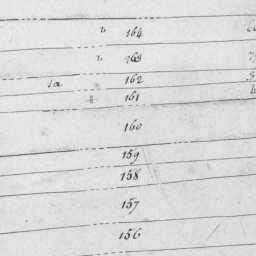 164
163
1a 162
161
160
159
158
157
156